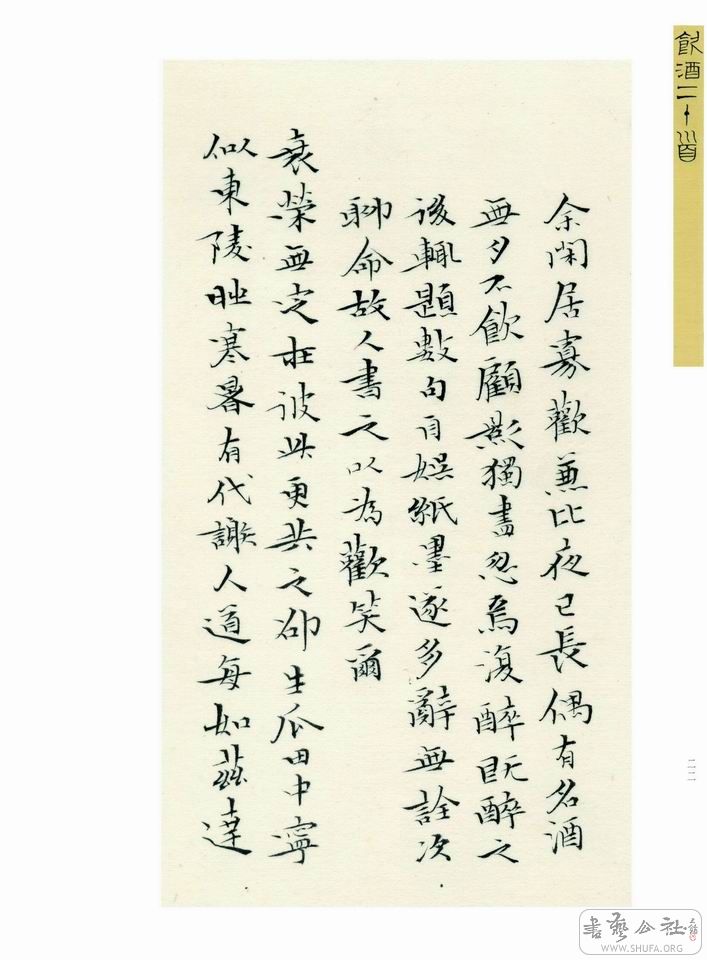 飲酒二十首
余閑居寡歡兼比夜已長偶有名酒
無夕不飲顧影獨盡忽焉復醉既醉之
後輒題數句自娛紙墨遂多辭無詮次
聊命故人書之以為歡笑爾
衰榮無定在彼此更共之邵生瓜田中寧
似東陵時寒暑有代謝人道每如茲達
二二
書藝公社
WWW.SHUFA.ORG